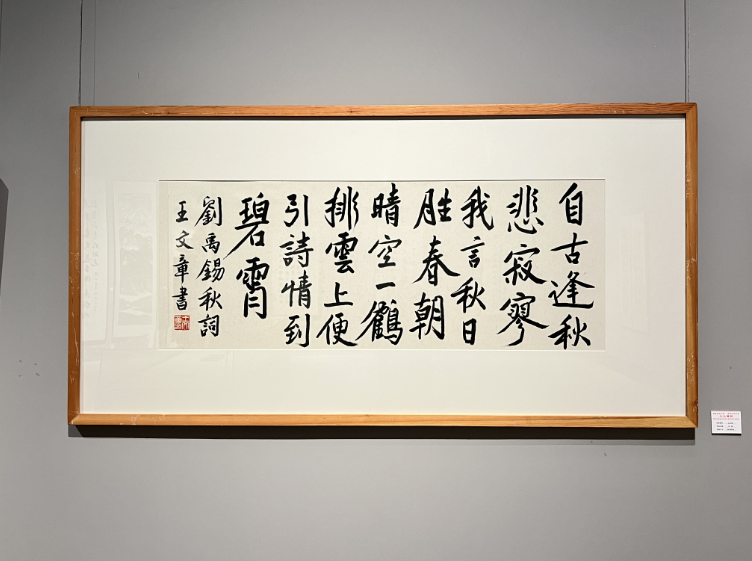 自古逢秋
悲寂寥
我言秋日
胜春朝
晴空一鶴
排雲上便
引詩情到
碧霄
劉禹錫秋詞
王文章書